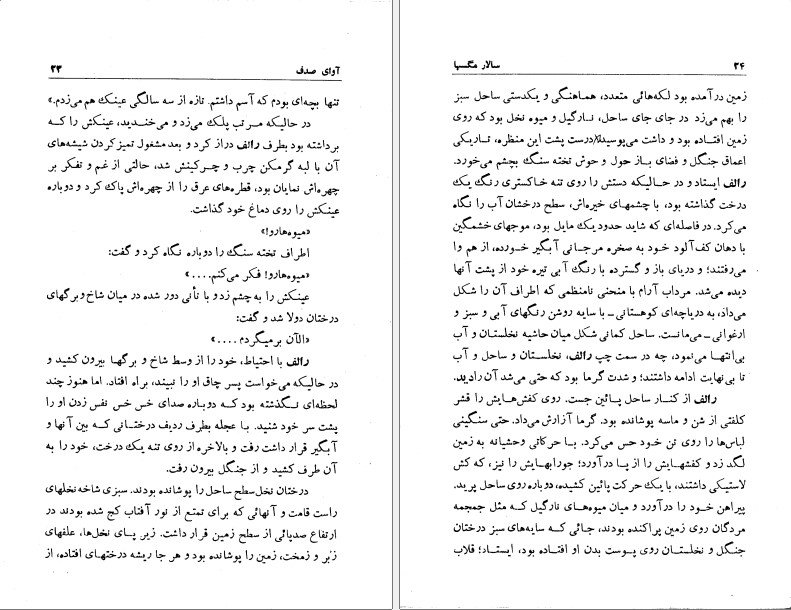 آوای صدف ۲۳
تنها بچه‌ای بودم که آسم داشتم. تازه از سه سالگی عینک هم می‌زدم.»
در حالیکه مرتب پلک می‌زد و می‌خندید، عینکش را که
برداشته بود بطرف رالف دراز کرد و بعد مشغول تمیز کردن شیشه‌های
آن با لبه گرمکن چرب و چرکینش شد، حالتی از غم و تفکر بر
چهره‌اش نمایان بود، قطره‌های عرق را از چهره‌اش پاک کرد و دوباره
عینکش را روی دماغ خود گذاشت.
«میوه‌هارو!»
اطراف تخته سنگ را دوباره نگاه کرد و گفت:
«میوه‌هارو! فکر می‌کنم....»
عینکش را به چشم زد و با تأنی دور شده در میان شاخ و برگهای
درختان دولا شد و گفت:
«الآن برمیگردم....»
رالف با احتیاط، خود را از وسط شاخ و برگها بیرون کشید و
در حالیکه می‌خواست پسر چاق او را نبیند، براه افتاد. اما هنوز چند
لحظه‌ای نگذشته بود که دوباره صدای خس خس نفس زدن او را
پشت سر خود شنید. با عجله بطرف ردیف درختانی که بین آنها و
آبگیر قرار داشت رفت و بالاخره از روی تنه یک درخت، خود را به
آن طرف کشید و از جنگل بیرون رفت.
درختان نخل سطح ساحل را پوشانده بودند. سبزی شاخه نخلهای
راست قامت و آنهائی که برای تمتع از نور آفتاب کج شده بودند در
ارتفاع صدپائی از سطح زمین قرار داشت. زیر پای نخل‌ها، علفهای
زبر و زمخت، زمین را پوشانده بود و هر جا ریشه درختهای افتاده، از
۲۴ سالار مگسها
زمین درآمده بود لکه‌هائی متعدد، هماهنگی و یکدستی ساحل سبز
را بهم می‌زد در جای جای ساحل، نارگیل و میوه نخل بود که روی
زمین افتاده بود و داشت می‌پوسید. درست پشت این منظره، تاریکی
اعماق جنگل و فضای باز حول و حوش تخته سنگ بچشم می‌خورد.
رالف ایستاد و در حالیکه دستش را روی تنه خاکستری رنگ یک
درخت گذاشته بود، با چشمهای خیره‌اش، سطح درخشان آب را نگاه
می‌کرد. در فاصله‌ای که شاید حدود یک مایل بود، موجهای خشمگین
با دهان کف‌آلود خود به صخره مرجانی آبگیر خورده، از هم وا
می‌رفتند؛ و دریای باز و گسترده با رنگ آبی تیره خود از پشت آنها
دیده می‌شد. مرداب آرام با منحنی نامنظمی که اطراف آن را شکل
می‌داد، به دریاچه‌ای کوهستانی ـ با سایه روشن رنگهای آبی و سبز و
ارغوانی ـ می‌مانست. ساحل کمانی شکل میان حاشیه نخلستان و آب
بی‌انتها می‌نمود، چه در سمت چپ رالف، نخلستان و ساحل و آب
تا بی‌نهایت ادامه داشتند؛ و شدت گرما بود که حتی می‌شد آن رادید.
رالف از کنار ساحل پائین جست. روی کفش‌هایش را قشر
کلفتی از شن و ماسه پوشانده بود. گرما آزارش می‌داد. حتی سنگینی
لباس‌ها را روی تن خود حس می‌کرد. با حرکاتی وحشیانه به زمین
لگد زد و کفشهایش را از پا درآورد؛ جورابهایش را نیز، که کش
لاستیکی داشتند، با یک حرکت پائین کشیده، دوباره روی ساحل پرید.
پیراهن خود را درآورد و میان میوه‌های نارگیل که مثل جمجمه
مردگان روی زمین پراکنده بودند، جائی که سایه‌های سبز درختان
جنگل و نخلستان روی پوست بدن او افتاده بود، ایستاد؛ قلاب